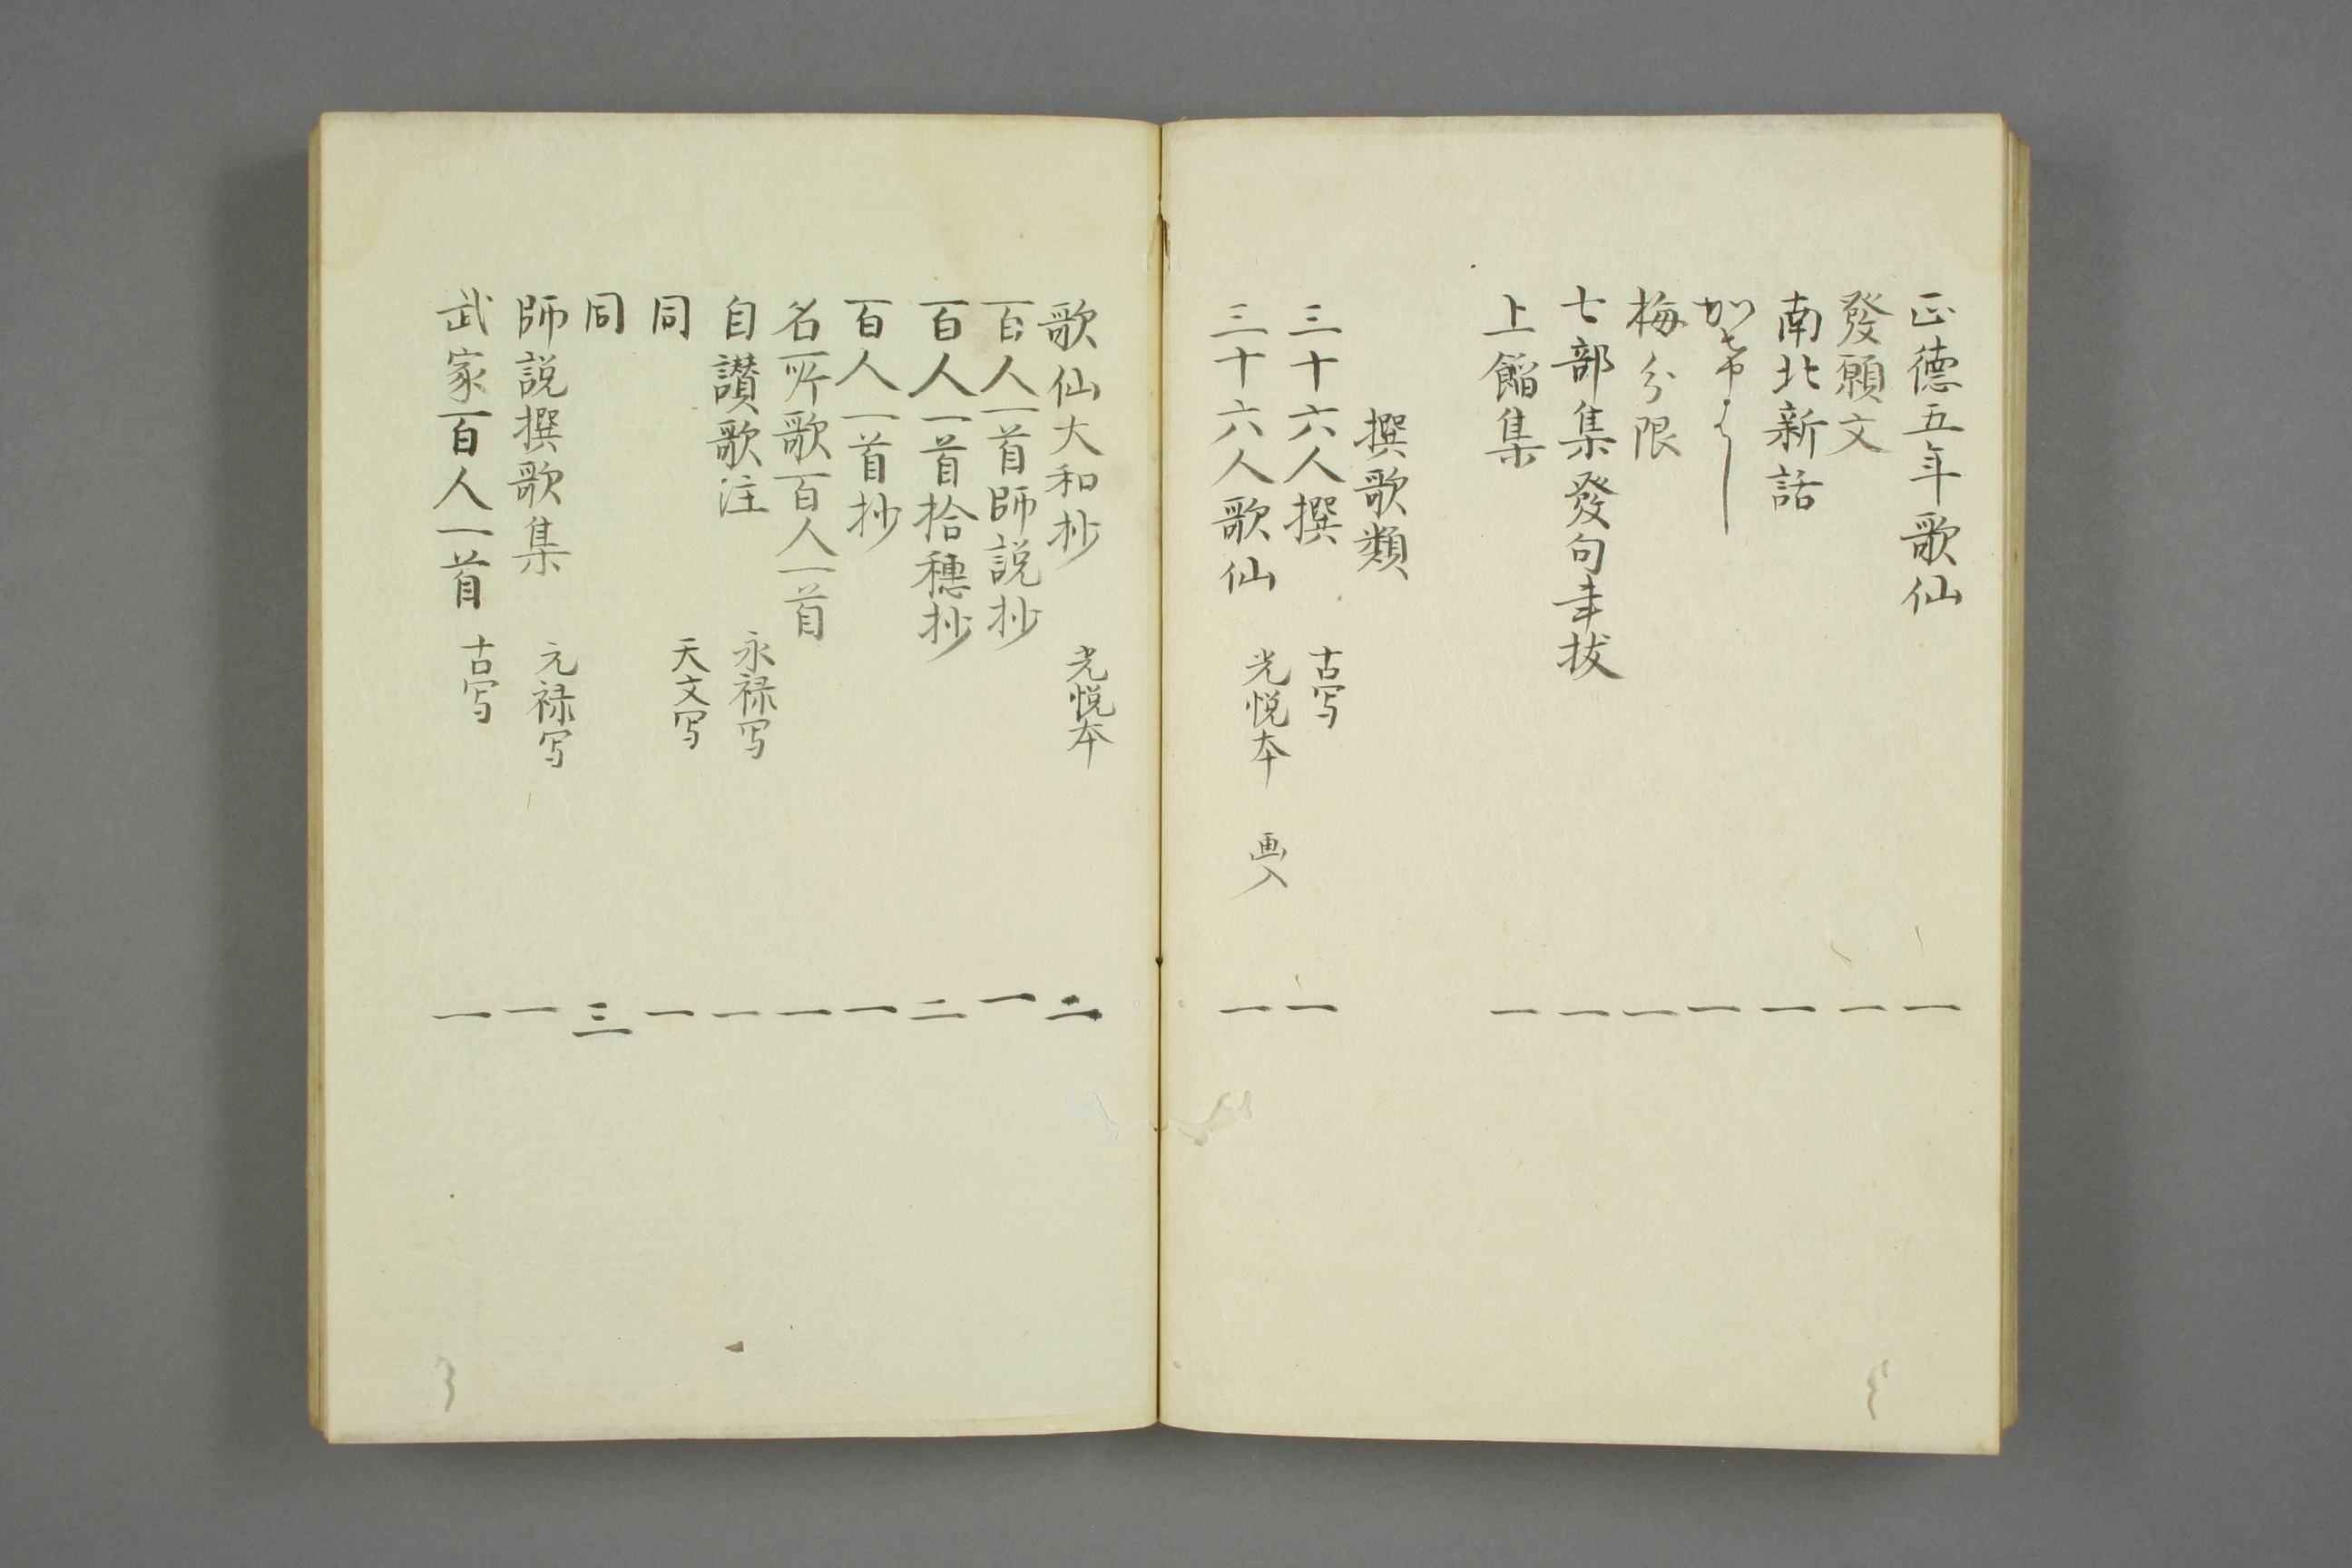 正徳五年歌仙 一
發願文 一
南北新話 一
一
梅分限 一
七部集發句年拔 一
上餡集 一
撰歌類
三十六人撰 古写 一
三十六人歌仙 光悦本 画入 一
歌仙大和抄 光悦本 二
百人一首師説抄 一
百人一首拾穗抄 二
百人一首抄 一
名所歌百人一首 一
自讃歌注 永禄写 一
同 天文写 一
同 三
師説撰歌集 元禄写 一
武家百人一首 古写 一